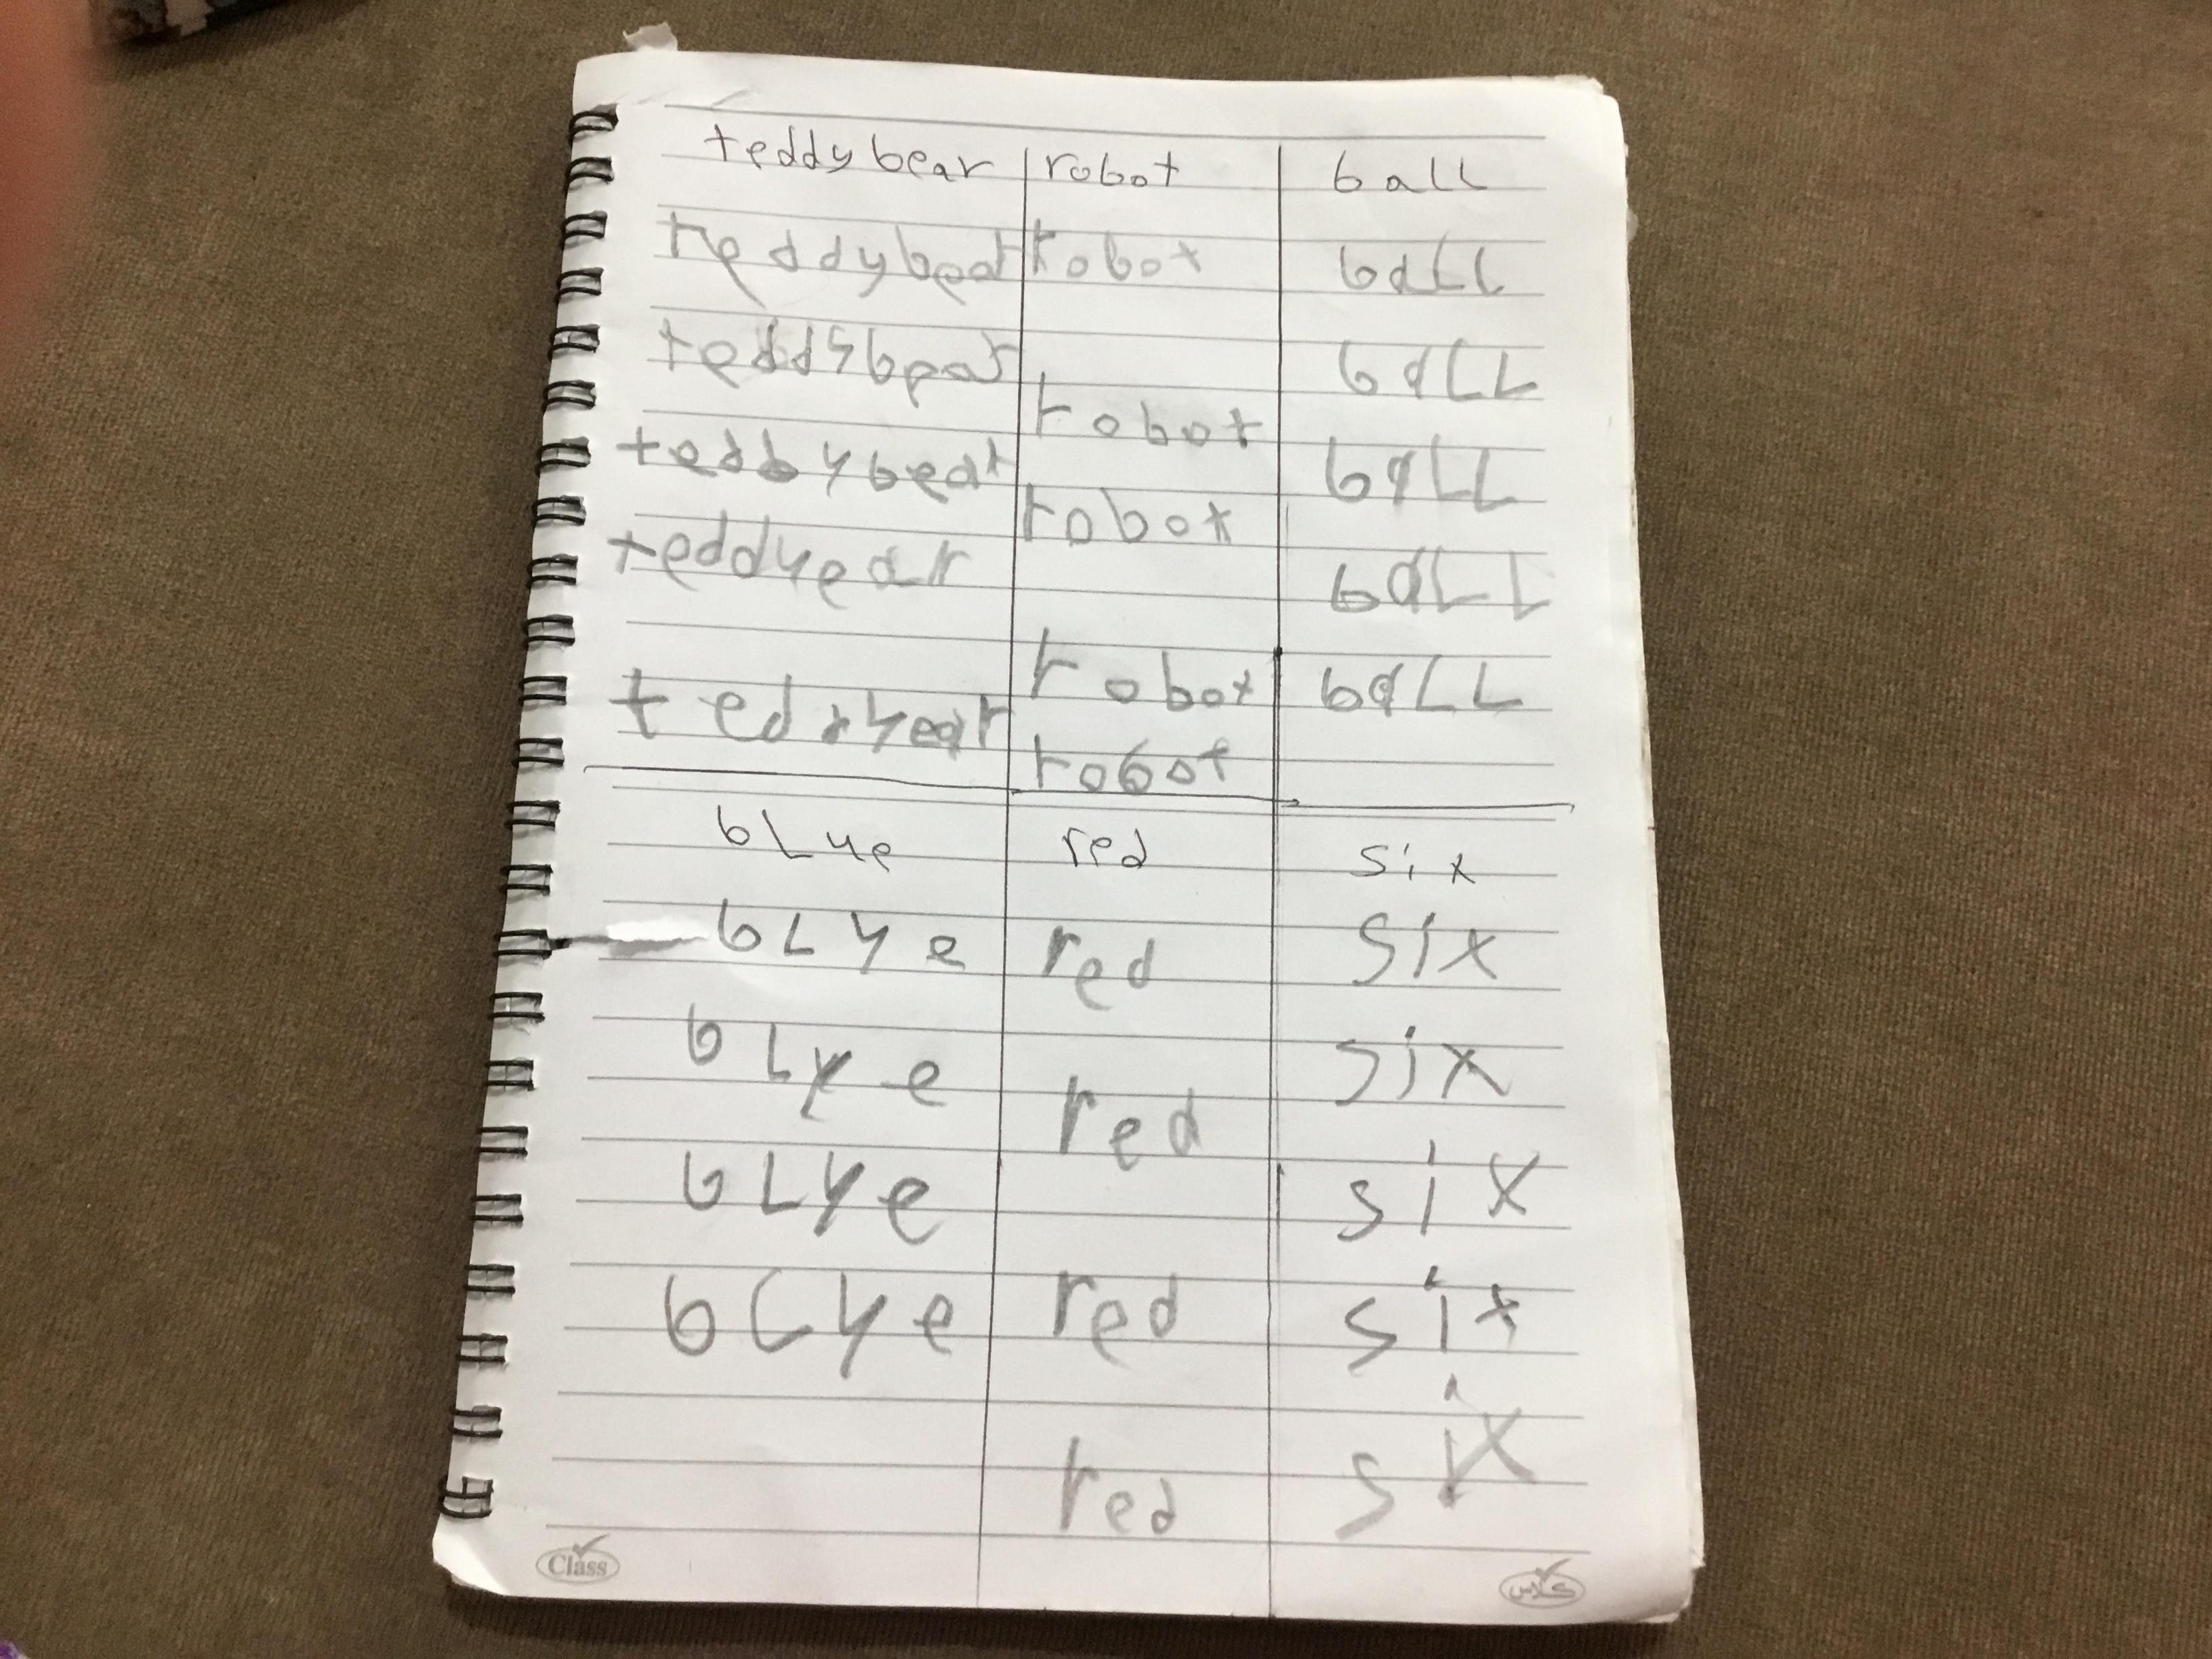 teddy bear robot ball
teddybear robot ball
teddybear ball
robot
teddybear ball
robot
teddyear ball
robot ball
teddyear
robot
blue red six
bLye red six
bLye six
red
bLye six
bLye red six
red six
Class كلاس